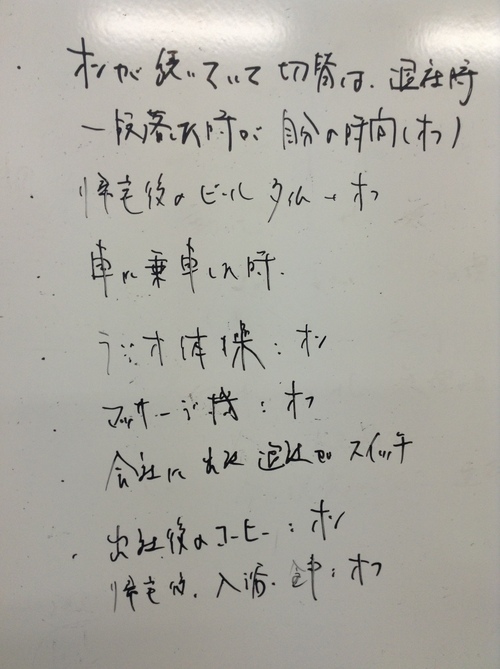 ・オンが続いていて切替は、退社時
一段落した時が自分の時間(オフ)
・帰宅後のビールタイム→オフ
・車に乗車した時.
・ラジオ体操：オン
・マッサージ機：オフ
・会社に出社退社がスイッチ
・出社後のコーヒー：オン
帰宅後、入浴、：オフ